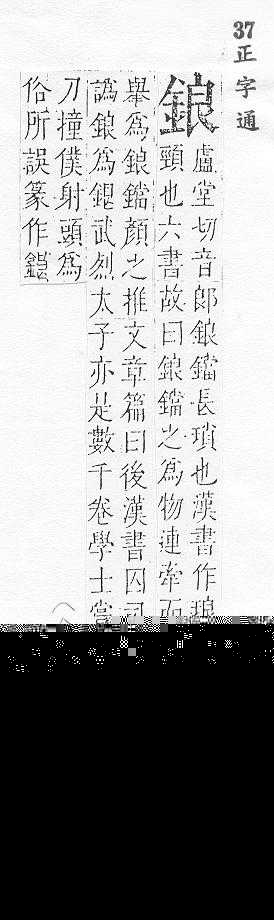 37 正字通
鋃
盧堂切音郎鋃鐺長瑣也漢書作
頸也六書故曰鋃鐺之為物連牽而
舉為鋃鐺顏之推文章篇曰後漢書囚司
譌鋃為鎠武烈太子亦是數千卷學士嘗
刀撞僕射頭為
俗所誤篆作